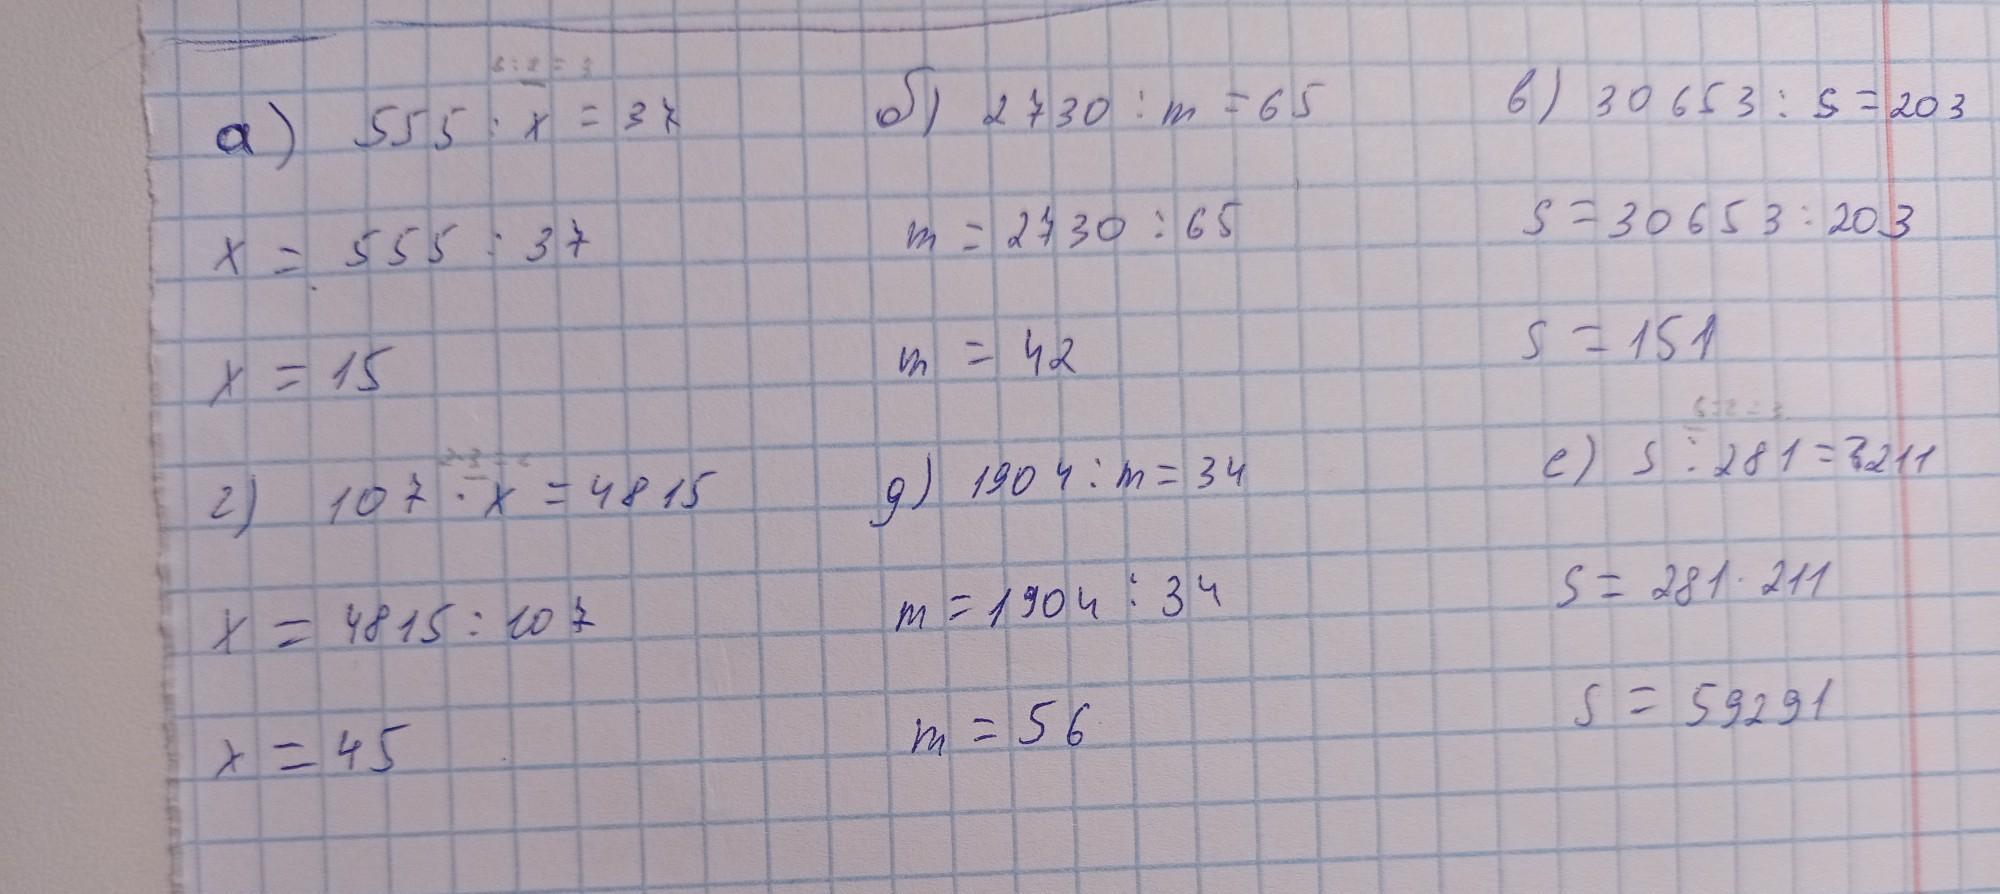 а) 555 : x = 37
б) 2730 : m = 65
в) 30653 : s = 203
x = 555 : 37
m = 2730 : 65
s = 30653 : 203
x = 15
m = 42
s = 151
г) 107 · x = 4815
д) 1904 : m = 34
е) s : 281 = 211
x = 4815 : 107
m = 1904 : 34
s = 281 · 211
x = 45
m = 56
s = 59291